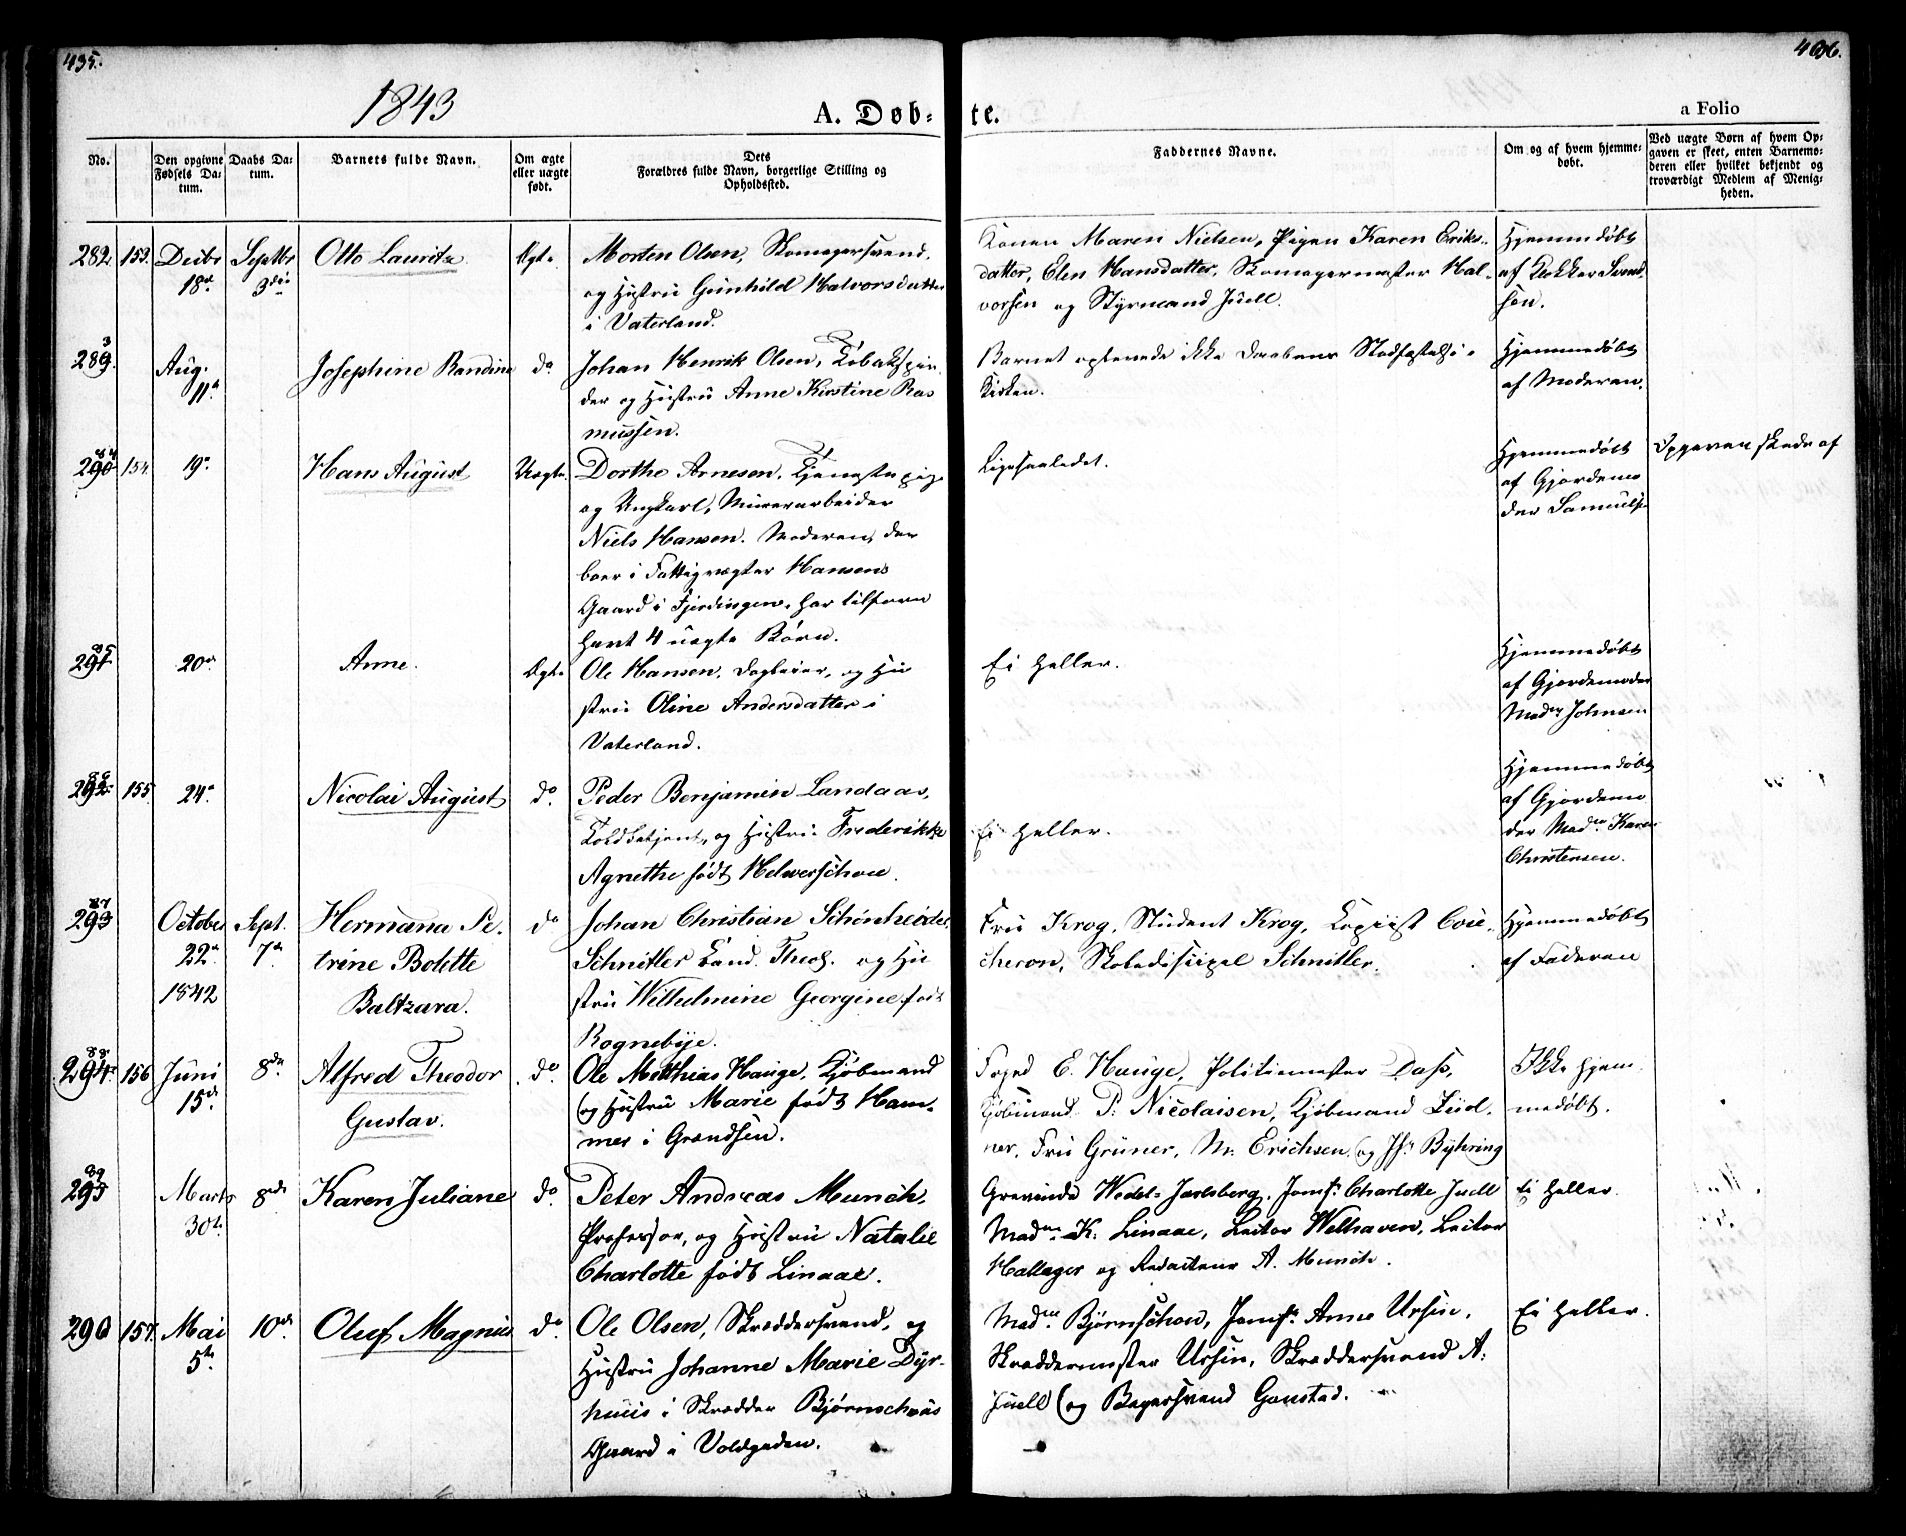 435.
406.
1843
A. Døb-
te.
a Folio
No.
Den opgivne Fødsels Datum.
Daabs Datum.
Barnets fulde Navn.
Om ægte eller uægte født.
Dets
Forældres fulde Navn, borgerlige Stilling og Opholdssted.
Faddernes Navne.
Om og af hvem hjemmedøbt.
Ved uægte Børn af hvem Opgaven er skeet, enten Barnemoderen eller hvilket bekjendt og troværdigt Medlem af Menigheden.
282. 153. Decbr 18de Septbr 3die Otto Lauritz Ægte
Morten Olsen, Skomagersvend,
og Hustru Gunhild Halvorsdatter
i Vaterland.
Konen Maren Nielsen, Pigen Karen Eriks-
datter, Elen Hansdatter, Skomagermester Hal-
vorsen og Styrmand Juell.
Hjemmedøbt
af Klokker Svend
sen.
283. Aug. 11te Josephine Randine do
Johan Henrik Olsen, Tobakspin
der og Hustru Anne Kirstine Ras
mussen.
Barnet opleverde ikke Daabens Stadfæstelse i
Kirken.
Hjemmedøbt
af Moderen.
290 84 154 19de Hans August Uægte
Dorthe Arnesen, Tjenestepige
og Ungkarl, Murerarbeider
Niels Hansen. Moderen, der
boer i Fattigvægter Hansens
Gaard i Fjerdingen, har tilforn
havt 4 uægte Børn.
Ligesaaledet.
Hjemmedøbt
af Gjordemo
der Samuels
Opgaven skede af
291 85 20de Anne. Ægte
Ole Hansen, Dagleier, og Hu
stru Oline Andersdatter i
Vaterland.
Ei heller.
Hjemmedøbt
af Gjordemoder
Madm Johnsen
292 86 155 24de Nicolai August do.
Peder Benjamin Landaas,
Toldbetjent, og Hustru Frederikke
Agnethe født Helverschou.
Ei heller.
Hjemmedøbt
af Gjordemo
der Madm Karen
Christensen.
293 87 October 22de 1842 Sept. 7de Hermana Pe-
trine Bolette
Baltzara. do
Johan Christian Schønheider
Schnitler Cand. Theol. og Hu
stru Wilhelmine Georgine født
Rognebye.
Fru Krog, Student Krog, Copiist Cou-
cheron, Skoledisiipel Schnitler.
Hjemmedøbt
af Faderen
294 88 156 Juni 15de 8de Alfred Theodor
Gustav. do
Ole Matthias Hauge, Kjøbmand
og Hustru Marie født Ham-
mer i Grændsen.
Foged E. Hauge, Politimester Dass,
Kjøbmand P. Nicolaisen, Kjøbmand
ner, Fru Grüner, Mr. Erichsen og Jfr. Bÿhring
Ikke hjem
medøbt.
295 89 Marts 30te 8de Karen Juliane do.
Peter Andreas Munch,
Professor, og Hustru Natalie
Charlotte født Linaae.
Grevinde Wedel-Jarlsberg, Jomf. Charlotte Juell
Madm K. Linaae, Lector Welhaven, Lector
Hallager og Redacteur A. Munch.
Ei heller.
290 157. Mai 5te 10de Oluf Magnus do
Ole Olsen, Skræddersvend, og
Hustru Johanne Marie Dÿr-
huus i Skrædder Bjørnschous
Gaard i Voldgaden.
Madm Bjørnschou, Jomfr. Anne Ursin,
Skræddermester Ursin, Skræddersvend A.
Juell og Bagersvend Gaustad.
Ei heller.